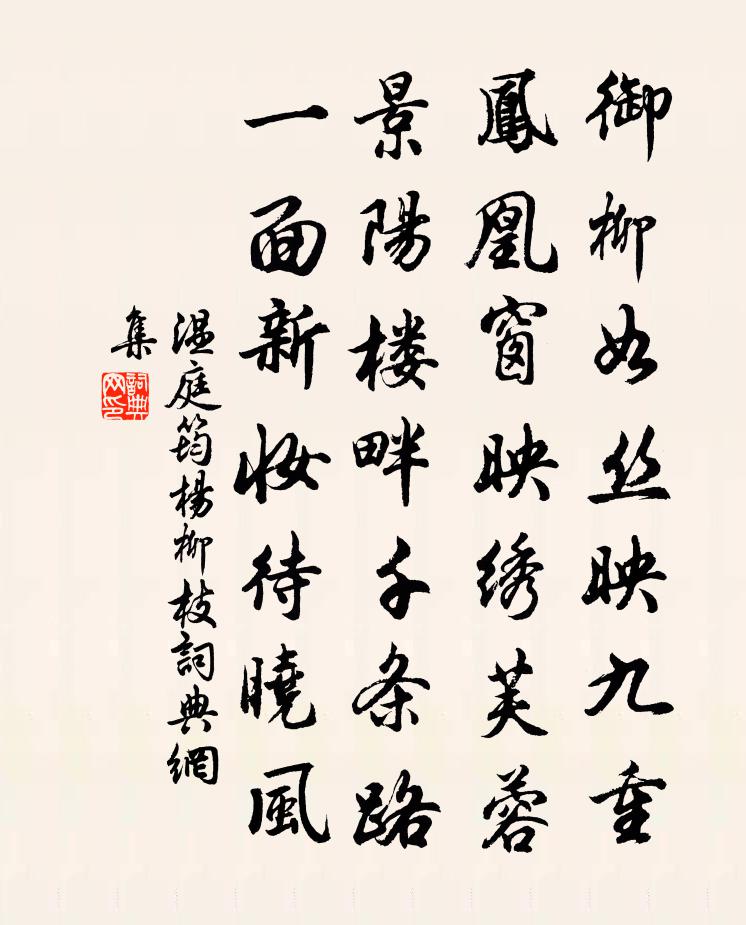 御柳如丝映九重
鳳凰窗映绣芙蓉
景陽楼畔千条路
一面新妆待曉風
温庭筠楊柳枝詞典網
集
詞典
网印